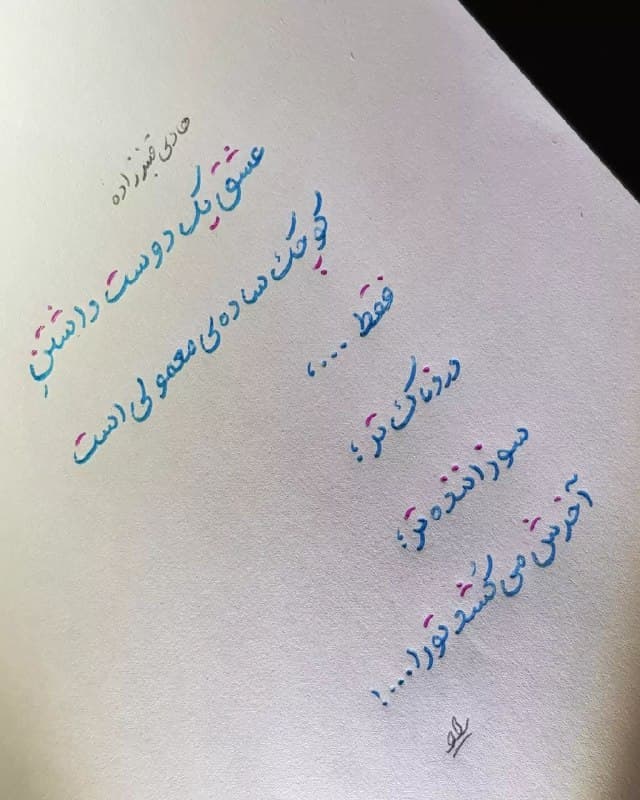 هادی قنبرزاده
عشق یک دوست داشتنِ
کوچک ساده‌ی معمولی است
فقط ....،
دردناک تر؛
سوزاننده تر؛
آخرش می کُشد تو را...!